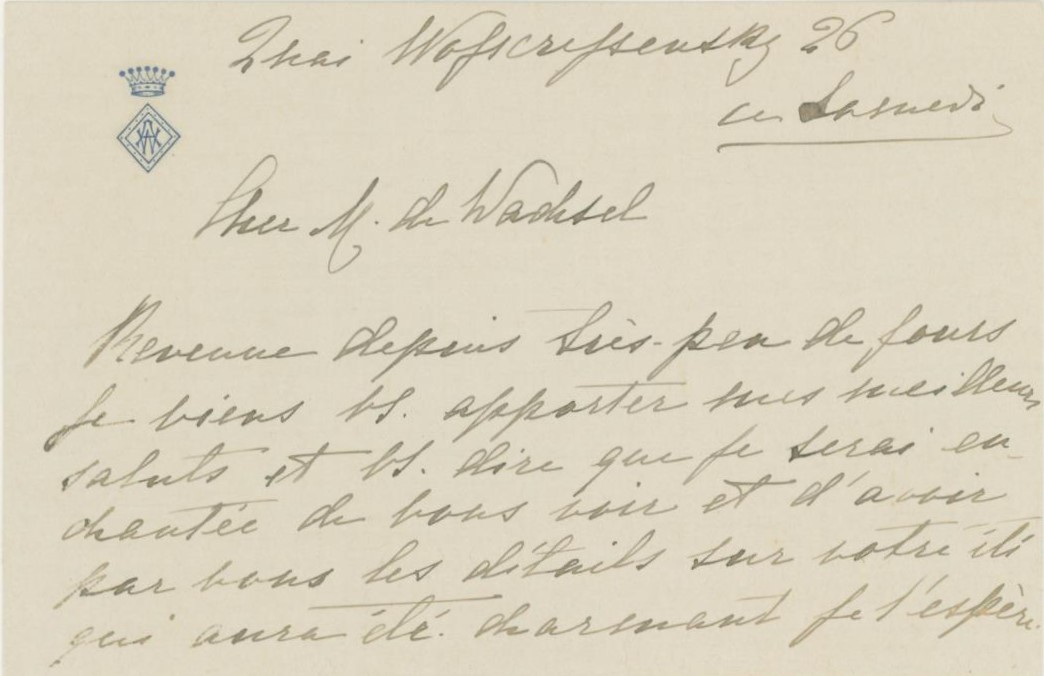 Quai Wosscressensky 26
ce Samedi
Cher M. de Wachsel
Revenue depuis très-peu de jours
je viens vs. apporter mes meilleurs
saluts et vs. dire que je serai en-
chantée de vous voir et d'avoir
par vous les détails sur votre été
qui aura été charmant je l'espère.